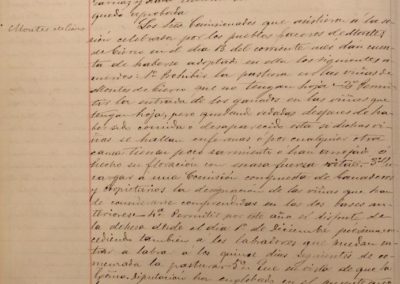 quedó aprobada
Montes de Cierro
Los Sres. Comisionados que asistieron a la se
sión celebrada por los pueblos faceros de Montes
de Cierro en el día 13 del corriente mes dan cuen
ta de haberse adoptado en ella los siguientes a
cuerdos: 1º Prohibir la pastura en las viñas de
Montes de Cierro que no tengan hoja. 2º Permi
tir la entrada de los ganados en las viñas que
tengan hoja, pero quedando vedadas después de ha
ber sido comida o desaparecido esta si dichas vi
ñas se hallan enfermas o por cualquier otra
causa tienen poco sarmiento o han arrojado o
hecho su floración con escasa fuerza vital. 3º En
cargar a una Comisión compuesta de ganaderos
y propietarios la designación de las viñas que han
de considerarse comprendidas en las dos bases an
teriores. 4º Permitir por este año el disfrute de
la dehesa desde el día 1º de Diciembre próximo con
cediendo también a los labradores que puedan en
trar a labrar a los quince días siguientes de co
menzada la pasturación. 5º Que en vista de que la
Excma. Diputación ha englobado en el